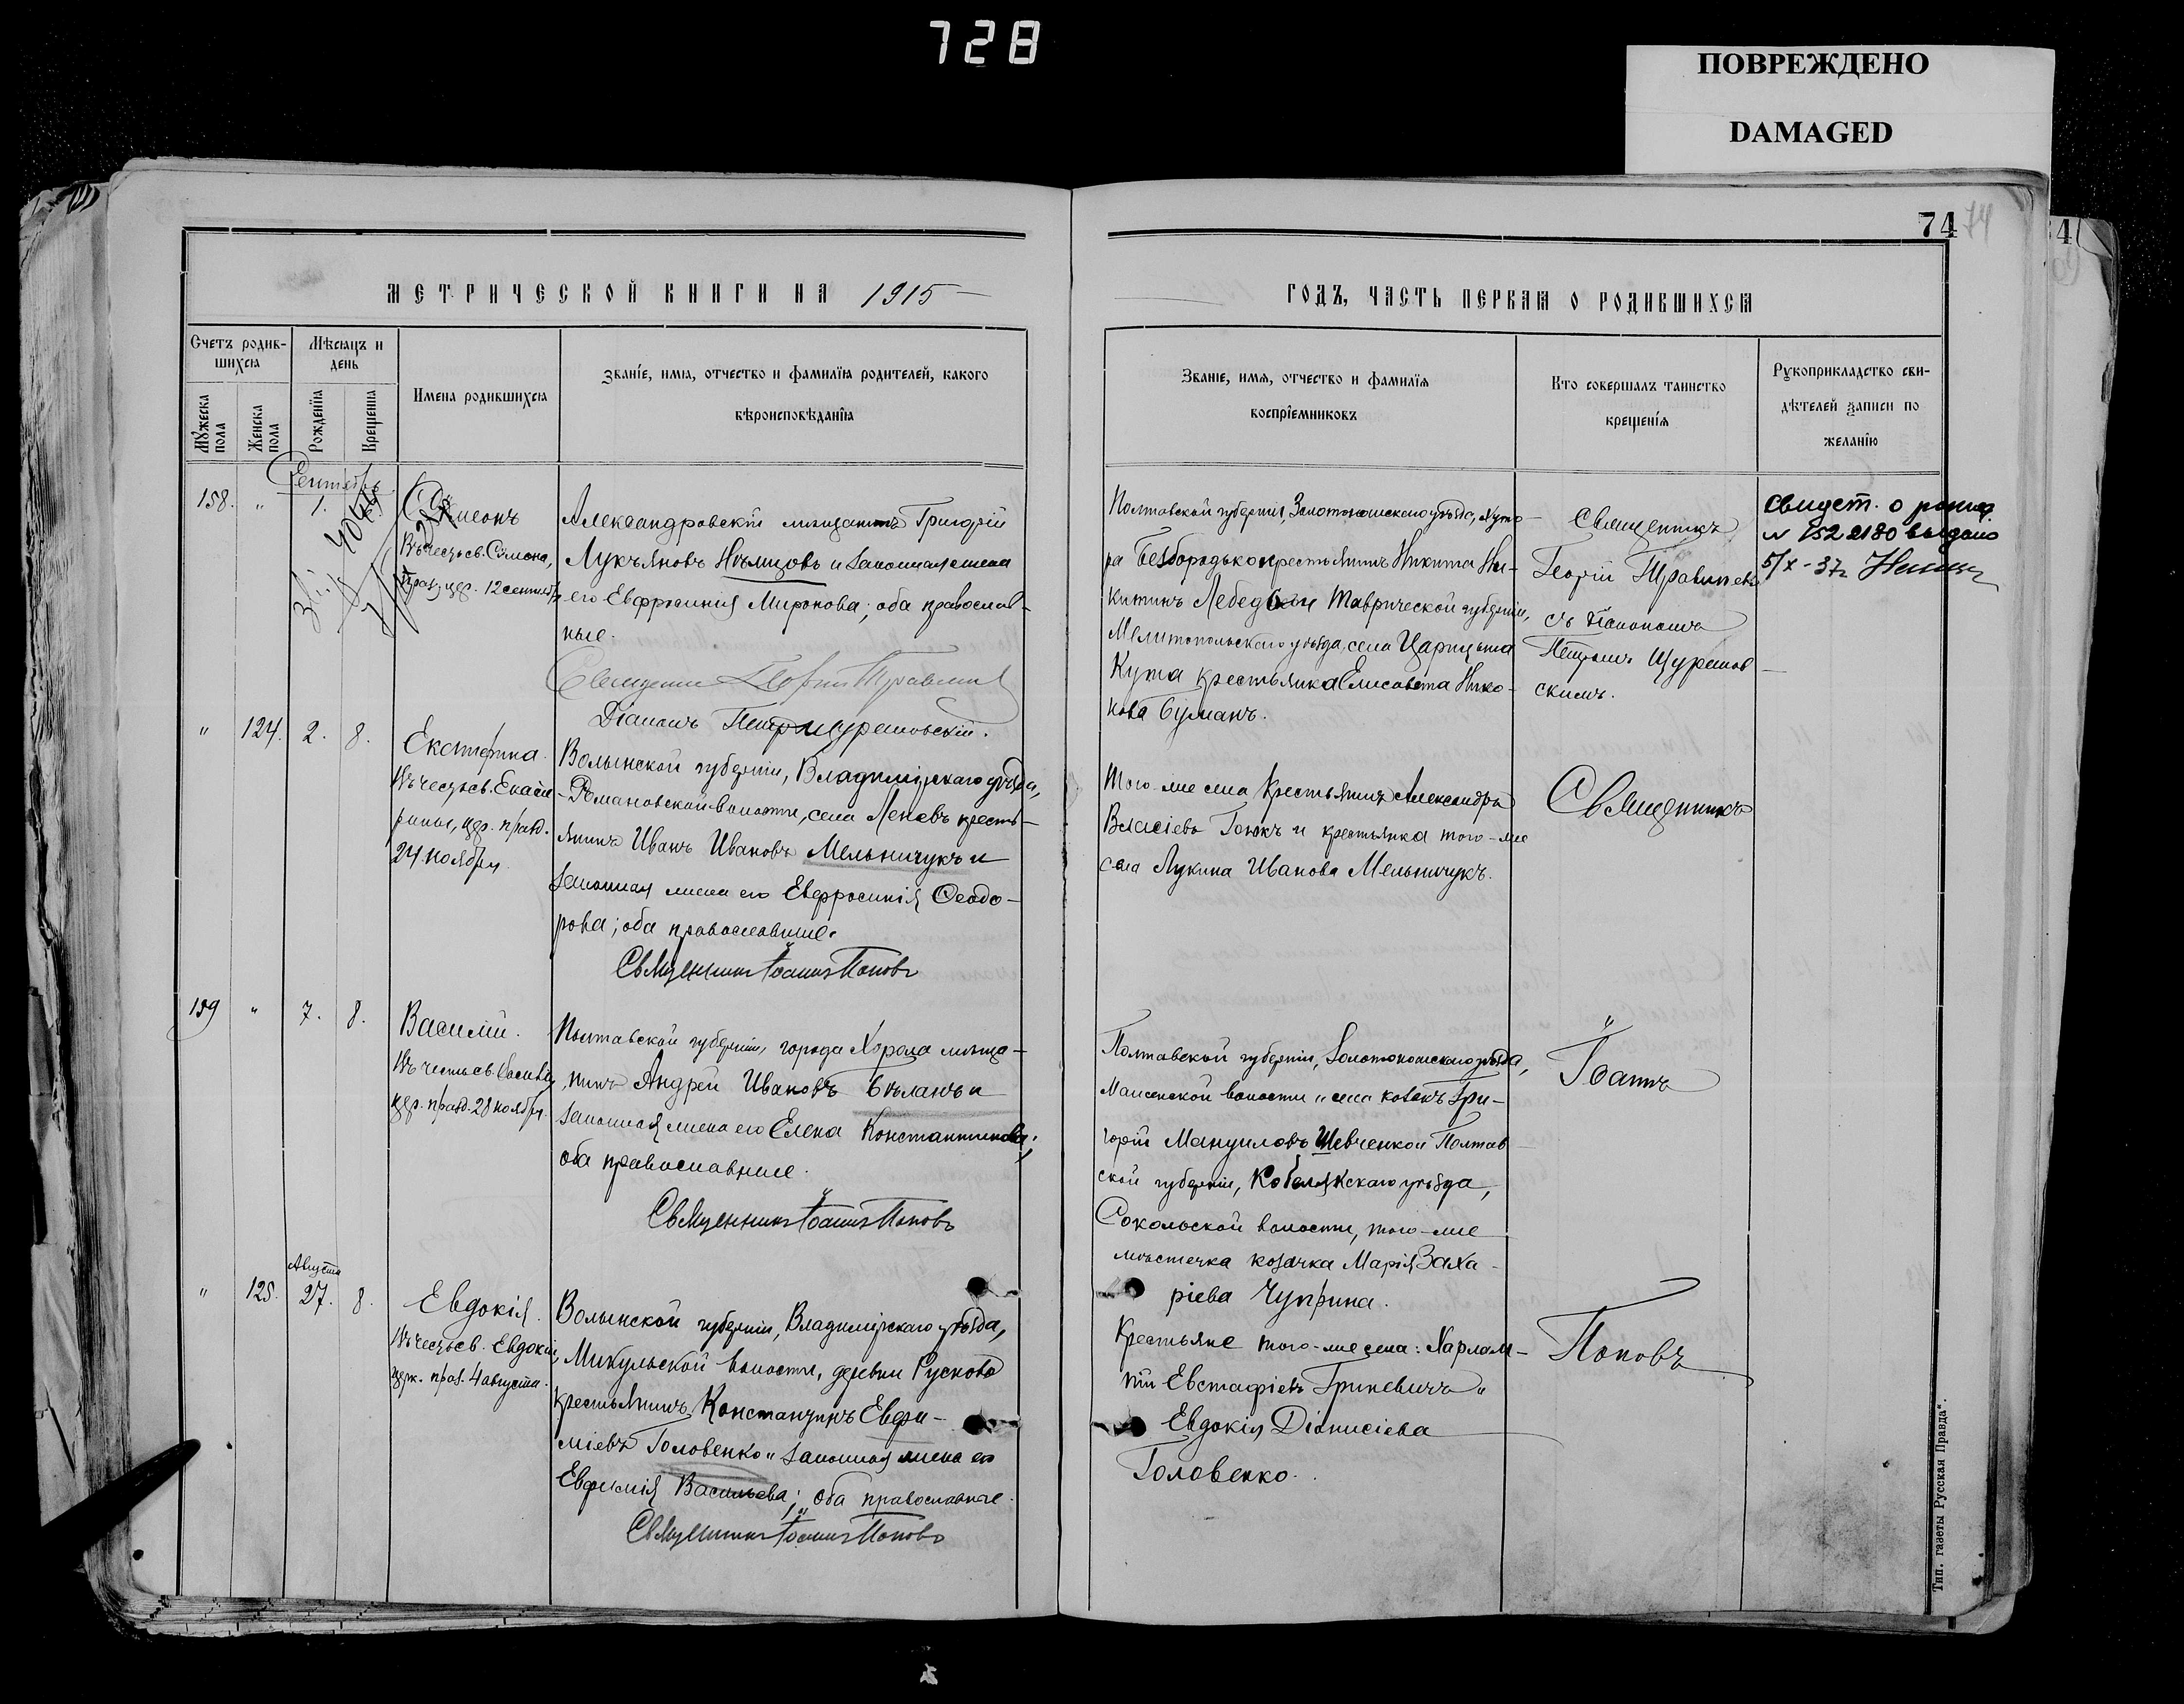 728
ПОВРЕЖДЕНО
DAMAGED
74
74
4
МЕТРИЧЕСКОЙ КНИГИ НА 1915
ГОДЪ, ЧАСТЬ ПЕРВАЯ О РОДИВШИХСЯ
Счетъ родив-
шихся
Мѣсяцъ и
день
Мужеска
пола
Женска
пола
Рожденїя
Крещенїя
Имена родившихся
Званїе, имя, отчество и фамилїя родителей, какого
вѣроисповѣданїя
Званїе, имя, отчество и фамилїя
воспрїемниковъ
Кто совершалъ таинство
крещенїя
Рукоприкладство сви-
дѣтелей записи по
желанїю
Сентябрь
158. " 1.
Симеонъ
Въ честь св. Симеона,
праз. цер. 12 сентября
Александровскій мѣщанинъ Григорій
Лукьяновъ Нѣмцовъ и законная жена
его Евфросинія Миронова; оба православ-
ные.
Священникъ Георгій Травинъ
Діаконъ Петръ Щурановскій.
Полтавской губерніи, Золотоношскаго уѣзда, хуто-
ра Безбородько крестьянинъ Никита Ни-
китинъ Лебедь и Таврической губерніи,
Мелитопольскаго уѣзда, села Царицына
Кута крестьянка Елисавета Нико-
нова Буманъ.
Священникъ
Георгій Травинъ
съ діакономъ
Петромъ Щуранов-
скимъ.
Свидет. о рожд.
N 1522180 выдано
5/X-37г
" 124. 2. 8.
Екатерина.
Въ честь св. Екате-
рины, цер. празд.
24 ноября
Волынской губерніи, Владимірскаго уѣзда,
Романовской волости, села Леневъ кресть-
янинъ Иванъ Ивановъ Мельничукъ и
законная жена его Евфросинія Ѳеодо-
рова; оба православные.
Священникъ Іоаннъ Поповъ
Того-же села крестьянинъ Александръ
Власіевъ Гаюкъ и крестьянка того-же
села Лукина Иванова Мельничукъ.
Священникъ
159 " 7. 8.
Василій.
Въ честь св. Василія,
цер. празд. 28 ноября.
Полтавской губерніи, города Хорола мѣща-
нинъ Андрей Ивановъ Бѣланъ и
законная жена его Елена Константинова;
оба православные.
Священникъ Іоаннъ Поповъ
Полтавской губерніи, Золотоношскаго уѣзда,
волости и села козакъ Гри-
горій Мануиловъ Шевченко и Полтав-
ской губерніи, Кобелякскаго уѣзда,
Сокольской волости, того-же
мѣстечка козачка Марія Заха-
ріева Чуприна.
Іоаннъ
Августа
" 125. 27. 8.
Евдокія.
Въ честь св. Евдокіи,
церк. праз. 4 августа.
Волынской губерніи, Владимірскаго уѣзда,
Микульской волости, деревни Русново
крестьянинъ Константинъ Евфи-
міевъ Головенко и законная жена его
Евфимія Васильева; оба православные.
Священникъ Іоаннъ Поповъ
Крестьяне того-же села: Харлам-
пій Евстафіевъ Гриневичъ и
Евдокія Діонисіева
Головенко.
Поповъ
Тип. газеты "Русская Правда".